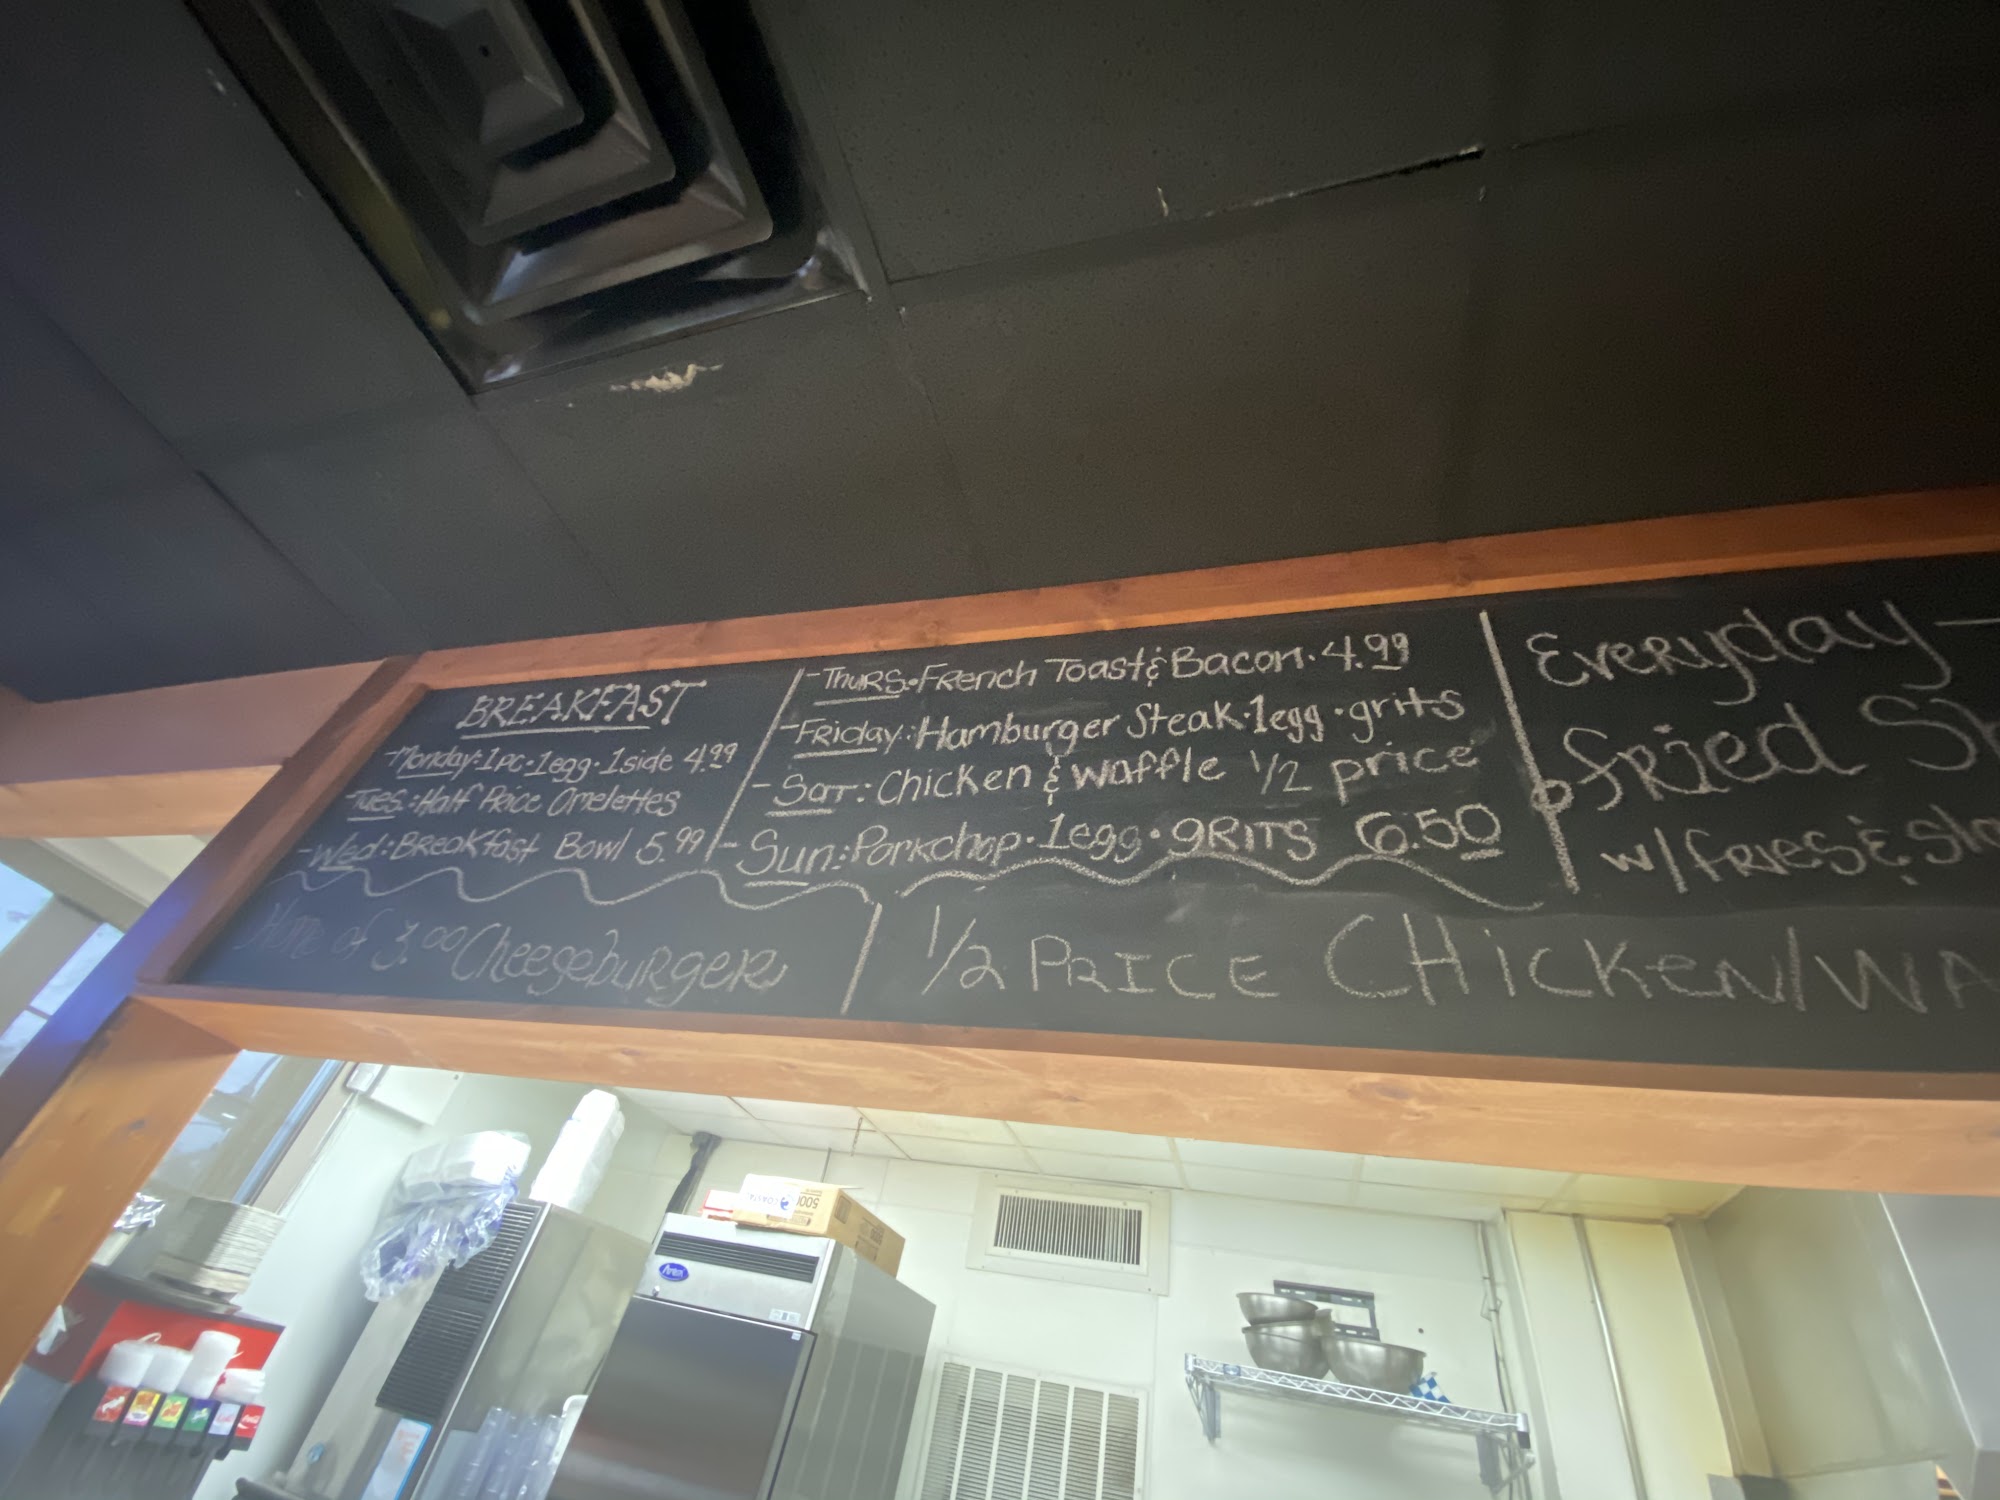 BREAKFAST
-Monday:1pc·1egg·1side 4.99
-Tues.:Half Price Omelettes
-Wed:Breakfast Bowl 5.99
-Thurs.·French Toast & Bacon·4.99
-Friday:Hamburger Steak·1egg·grits
-Sat:Chicken & Waffle 1/2 price
-Sun:Porkchop·1egg·GRITS 6.50
Everyday-
fried
w/fries &
Home of 3.00 Cheeseburger
1/2 PRICE CHicKeN/WA
Atosa
500